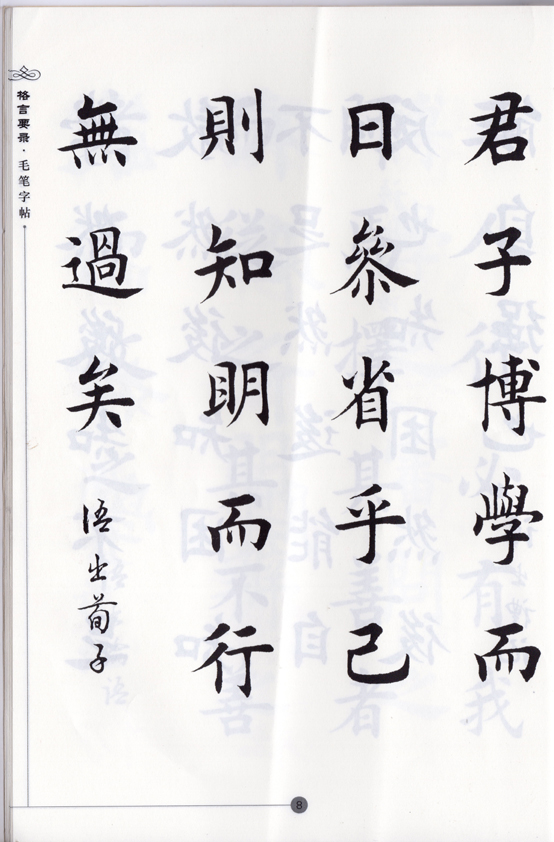 君子博學而
日參省乎己
則知明而行
無過矣
語出荀子
格言要录·毛笔字帖
8